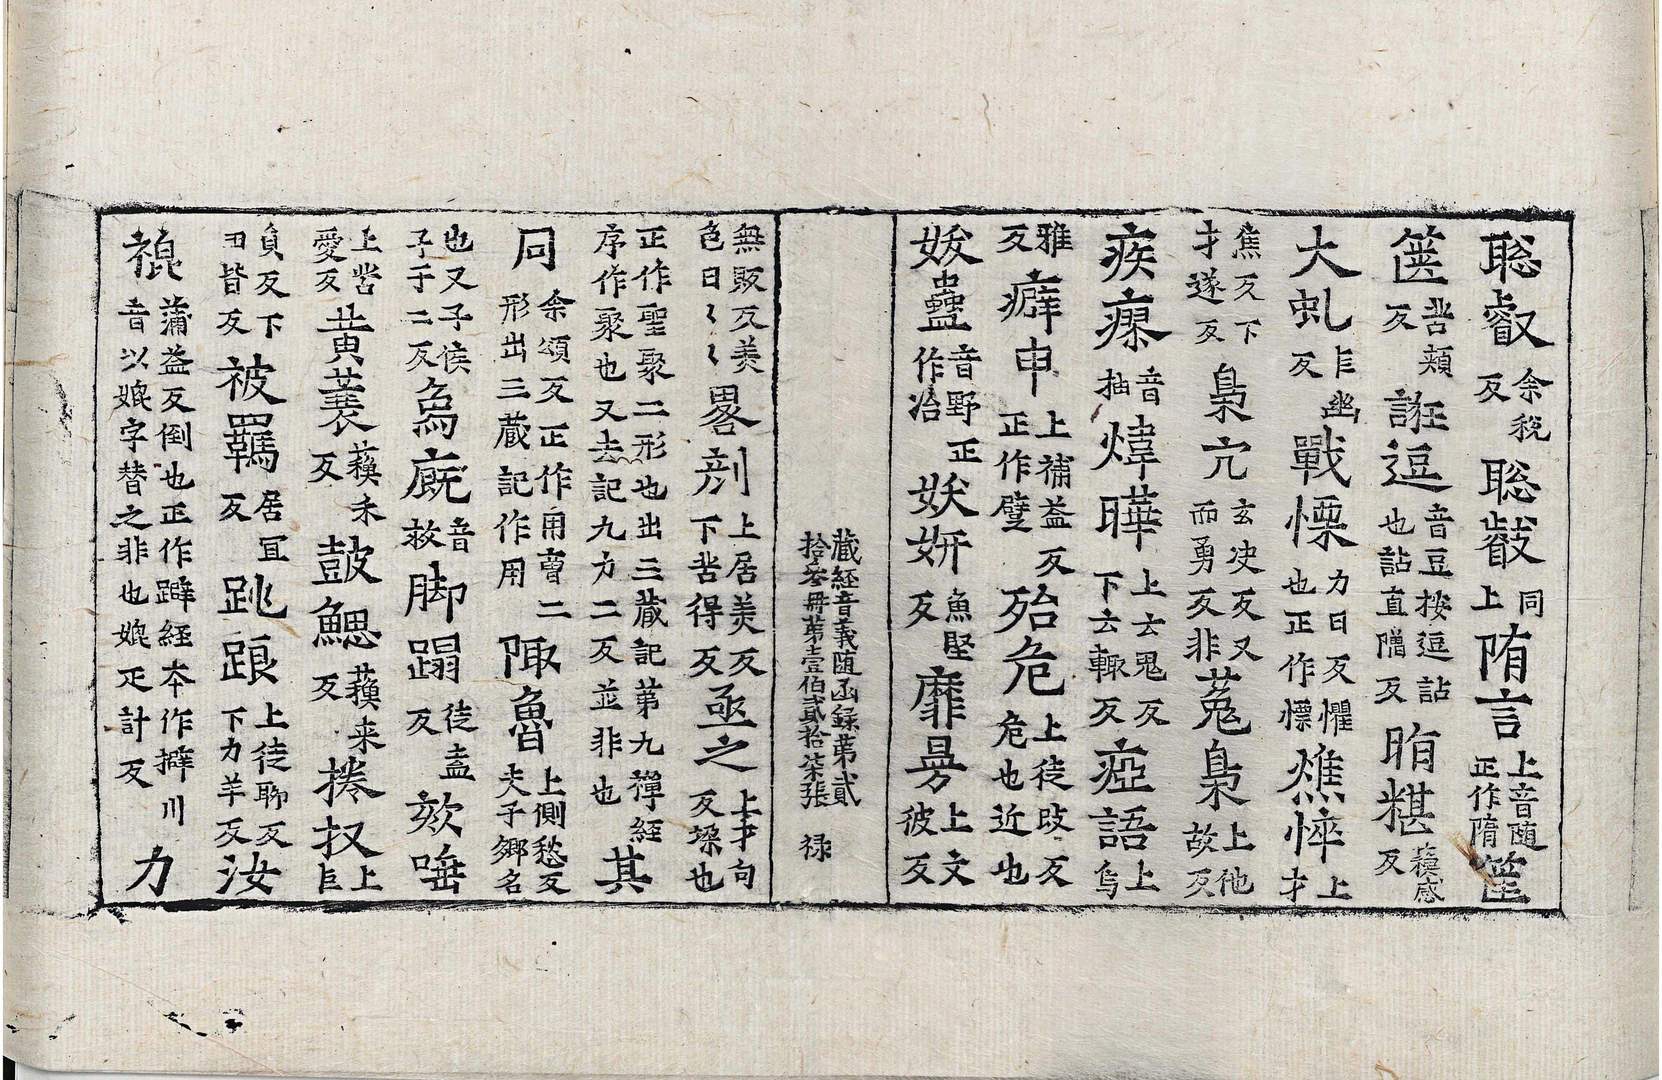 聡叡余税反聡叡同上陏言上音随正作隋篋
篋苦頬反誑逗音豆按逗詀也詀直賺反㫋糂蘓感反
大虬巨幽反戰慄力日反懼也正作慓憔悴上才
焦反下才遂反梟穴玄決反又而勇反非菟梟上他故反
疾瘳音抽煒曄上云鬼反下云輙反瘂語上烏
雅反癖申上補益反正作躄殆危上徒改反危也近也
妭蠱音野正作冶妖妍魚堅反靡曼上文彼反
藏経音義随函録苐貳拾叄冊苐壹伯貳拾柒張 禄
無販反美色曰〻〻畧剤上居美反下苦得反亟之上才句反堁也
正作聖聚二形也出三藏記苐九禅経序作聚也又去記九力二反並非也其
同余頌反正作用䆿二形出三藏記作用陬魯上側愁反夫子郷名
也又子侯子于二反為廐音救脚蹋徒盍反欬唾
上苦愛反黄蓑蘓禾反鼓鰓蘓来反捲扠上巨
負反下丑皆反被羈居冝反跳踉上徒聊反下力羊反汝
裩蒲益反倒也正作躃経本作擗川音以媲字替之非也媲疋計反力